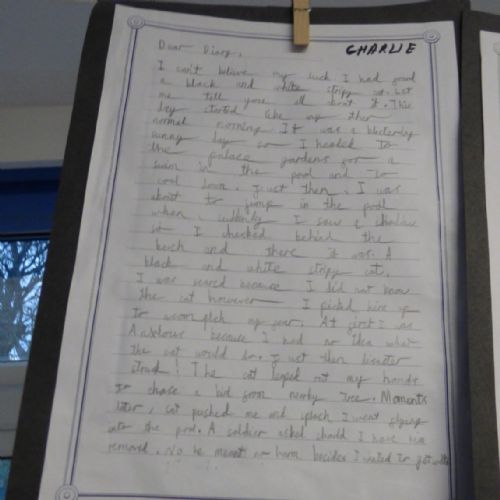 Dear Diary,
CHARLIE
I can't believe my luck I had found
a black and white stripy cat. Let
me tell you all about it. This
day started like any other
normal morning. It was a blisteringly
sunny day so I headed to
the palace gardens for a
swim in the pool and to
cool down. Just then, I was
about to jump in the pool
when, suddenly I saw a shadow
so I checked behind the
bench and there it was. A
black and white stripy cat.
I was scared because I did not know
the cat however I picked him up
to my year. At first I was
Anxious because I had no idea what
the cat would do. Just then disaster
struck! The cat leaped out my hands
to chase a bird from nearby tree. Moments
later, cat pushed me and splash I went flying
into the pool. A soldier asked should I have him
removed. No he meant no harm besides I wanted to get